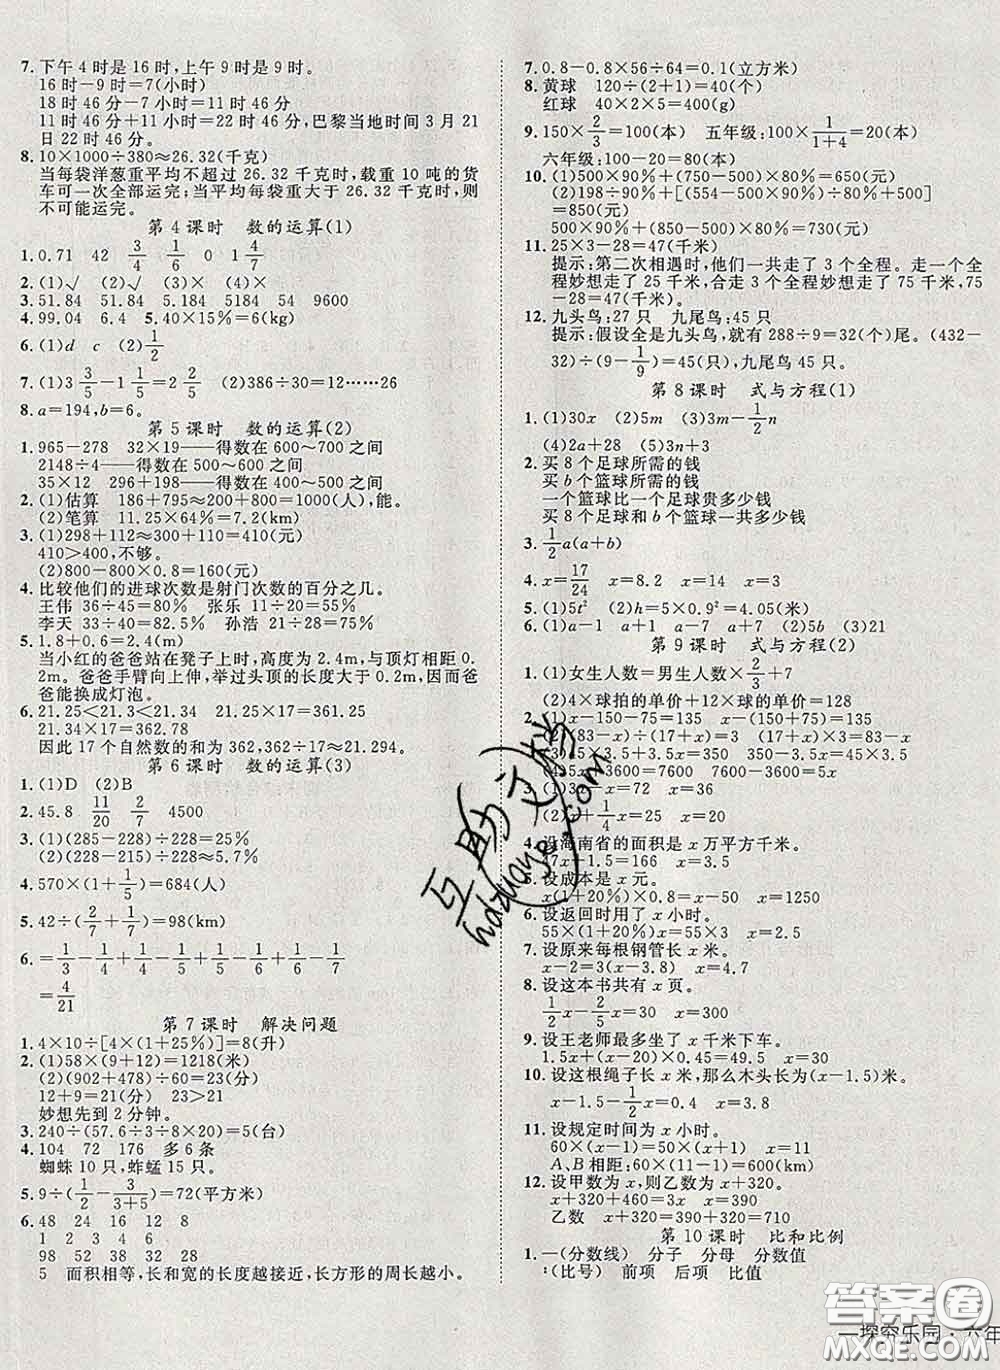 7. 下午 4 时是 16 时,上午 9 时是 9 时。
16 时-9 时=7(小时)
18 时 46 分-7 小时=11 时 46 分
11 时 46 分+11 小时=22 时 46 分,巴黎当地时间 3 月 21
日 22 时 46 分。
8. 10×1000÷380≈26.32(千克)
当每袋洋葱重平均不超过 26.32 千克时,载重 10 吨的货
车可一次全部运完;当平均每袋重大于 26.32 千克时,则
不可能运完。
第 4 课时 数的运算(1)
1. 0.71 42 3/4 1/6 0 1 4/7
2. (1)√ (2)√ (3)× (4)×
3. 51.84 51.84 5.184 5184 54 9600
4. 99.04 6.4 5. 40×15%=6(kg)
6. (1)d c (2)1/2
7. (1)3 3/5-1 1/5=2 2/5 (2)386÷30=12……26
8. a=194,b=6。
第 5 课时 数的运算(2)
1. 965-278 32×19——得数在 600~700 之间
2148÷4——得数在 500~600 之间
35×12 296+198——得数在 400~500 之间
2. (1)估算 186+795≈200+800=1000(人),能。
(2)笔算 11.25×64%=7.2(km)
3. (1)298+112≈300+110=410(元)
410>400,不够。
(2)800-800×0.8=160(元)
4. 比较他们的进球次数是射门次数的百分之几。
王伟 36÷45=80% 张乐 11÷20=55%
李天 33÷40=82.5% 孙浩 27÷50=54%
5. 1.8+0.6=2.4(m)
当小红的爸爸站在凳子上时,高度为 2.4m,与顶灯相距 0.
2m。爸爸手臂向上伸,举过头顶的长度大于 0.2m,因而爸
爸能换成灯泡。
6. 21.25<21.3<21.34 21.25×17=361.25
21.34×17=362.78
因此 17 个自然数的和为 362,362÷17≈21.294。
第 6 课时 数的运算(3)
1. (1)D (2)B
2. 45.8 11/20 2/7 4500
3. (1)(285-228)÷228=25%
(2)(228-215)÷228≈5.7%
4. 570×(1+1/5)=684(人)
5. 42÷(2/7+1/7)=98(km)
6. =1/3-1/4+1/4-1/5+1/5-1/6+1/6-1/7
=4/21
第 7 课时 解决问题
1. 4×10÷[4×(1+25%)]=8(升)
2. (1)58×(9+12)=1218(米)
(2)(902+478)÷60=23(分)
12+9=21(分) 23>21
妙想先到 2 分钟。
3. 240÷(57.6÷3÷8×20)=5(台)
4. 104 72 176 多 6 条
蜘蛛 10 只,蚱蜢 15 只。
5. 9÷(1/2-3/(3+5))=72(平方米)
6. 48 24 16 12 8
1 2 3 4 6
98 52 38 32 28
5 面积相等,长和宽的长度越接近,长方形的周长越小。
7. 0.8-0.8×56÷64=0.1(立方米)
8. 黄球 120÷(2+1)=40(个)
红球 40×2×5=400(g)
9. 150×2/3=100(本) 五年级:100×1/(1+4)=20(本)
六年级:100-20=80(本)
10. (1)500×90%+(750-500)×80%=650(元)
(2)198÷90%+[(554-500×90%)÷80%+500]
=850(元)
500×90%+(850-500)×80%=730(元)
11. 25×3-28=47(千米)
提示:第二次相遇时,他们一共走了 3 个全程。走一个全
程妙想走了 25 千米,合走 3 个全程妙想走了 75 千米,75
-28=47(千米)。
12. 九头鸟:27 只 九尾鸟:45 只
提示:假设全是九头鸟,就有 288÷9=32(个)尾。(432-
32)÷(9-1/9)=45(只),九尾鸟 45 只。
第 8 课时 式与方程(1)
1. (1)30x (2)5m (3)3m-1/2n
(4)2a+28 (5)3n+3
2. 买 8 个足球所需的钱
买 b 个篮球所需的钱
一个篮球比一个足球贵多少钱
买 8 个足球和 b 个篮球一共多少钱
3. 1/2a(a+b)
4. x=17/24 x=8.2 x=14 x=3
5. (1)5t² (2)h=5×0.9²=4.05(米)
6. (1)a-1 a+1 a-7 a+7 (2)5b (3)21
第 9 课时 式与方程(2)
1. (1)女生人数=男生人数×2/3+7
(2)4×球拍的单价+12×球的单价=128
2. (1)x-150-75=x-(150+75)=x-225
(2)(83-x)÷(17+x)=3 (17+x)×3=83-x
(3)45×3.5-55x=10 55x+10=45×3.5
(4)5x+3600=7600 7600-5x=3600
3. (1)x-1/3x=72 x=36
(2)x+1/4x=25 x=20
4. 设海南省的面积是 x 万平方千米。
47x-1.5=166 x=3.5
5. 设成本是 x 元。
x(1+20%)×0.9-x=9.6 x=120
6. 设返回时用了 x 小时。
55×(1+20%)x=55×3 x=2.5
7. 设原来每根钢管长 x 米。
x-2=3(x-3.2) x=3.8
8. 设这本书共有 x 页。
1/2x-2/5x=30 x=300
9. 设王老师最多坐了 x 千米下车。
1.5x+(x-20)×0.45=49.5 x=30
10. 设这根绳子长 x 米,那么木头长为(x-1.5)米。
x-1.5-1/2x=0.4 x=3.8
11. 设规定时间为 x 小时。
60×(x-1)=50×(x+1) x=11
A、B 相距:60×(11-1)=600(km)
12. 设甲数为 x,则乙数为 x+320。
x+320+x+320=460×3 x=390 
乙数 x+320=390+320=710
第 10 课时 比和比例
1. —(分数线) 分子 分母 分数值
:(比号) 前项 后项 比值
互助文档
hdzuoye.com
答案圈
MXQE.COM
一探究乐园·六年